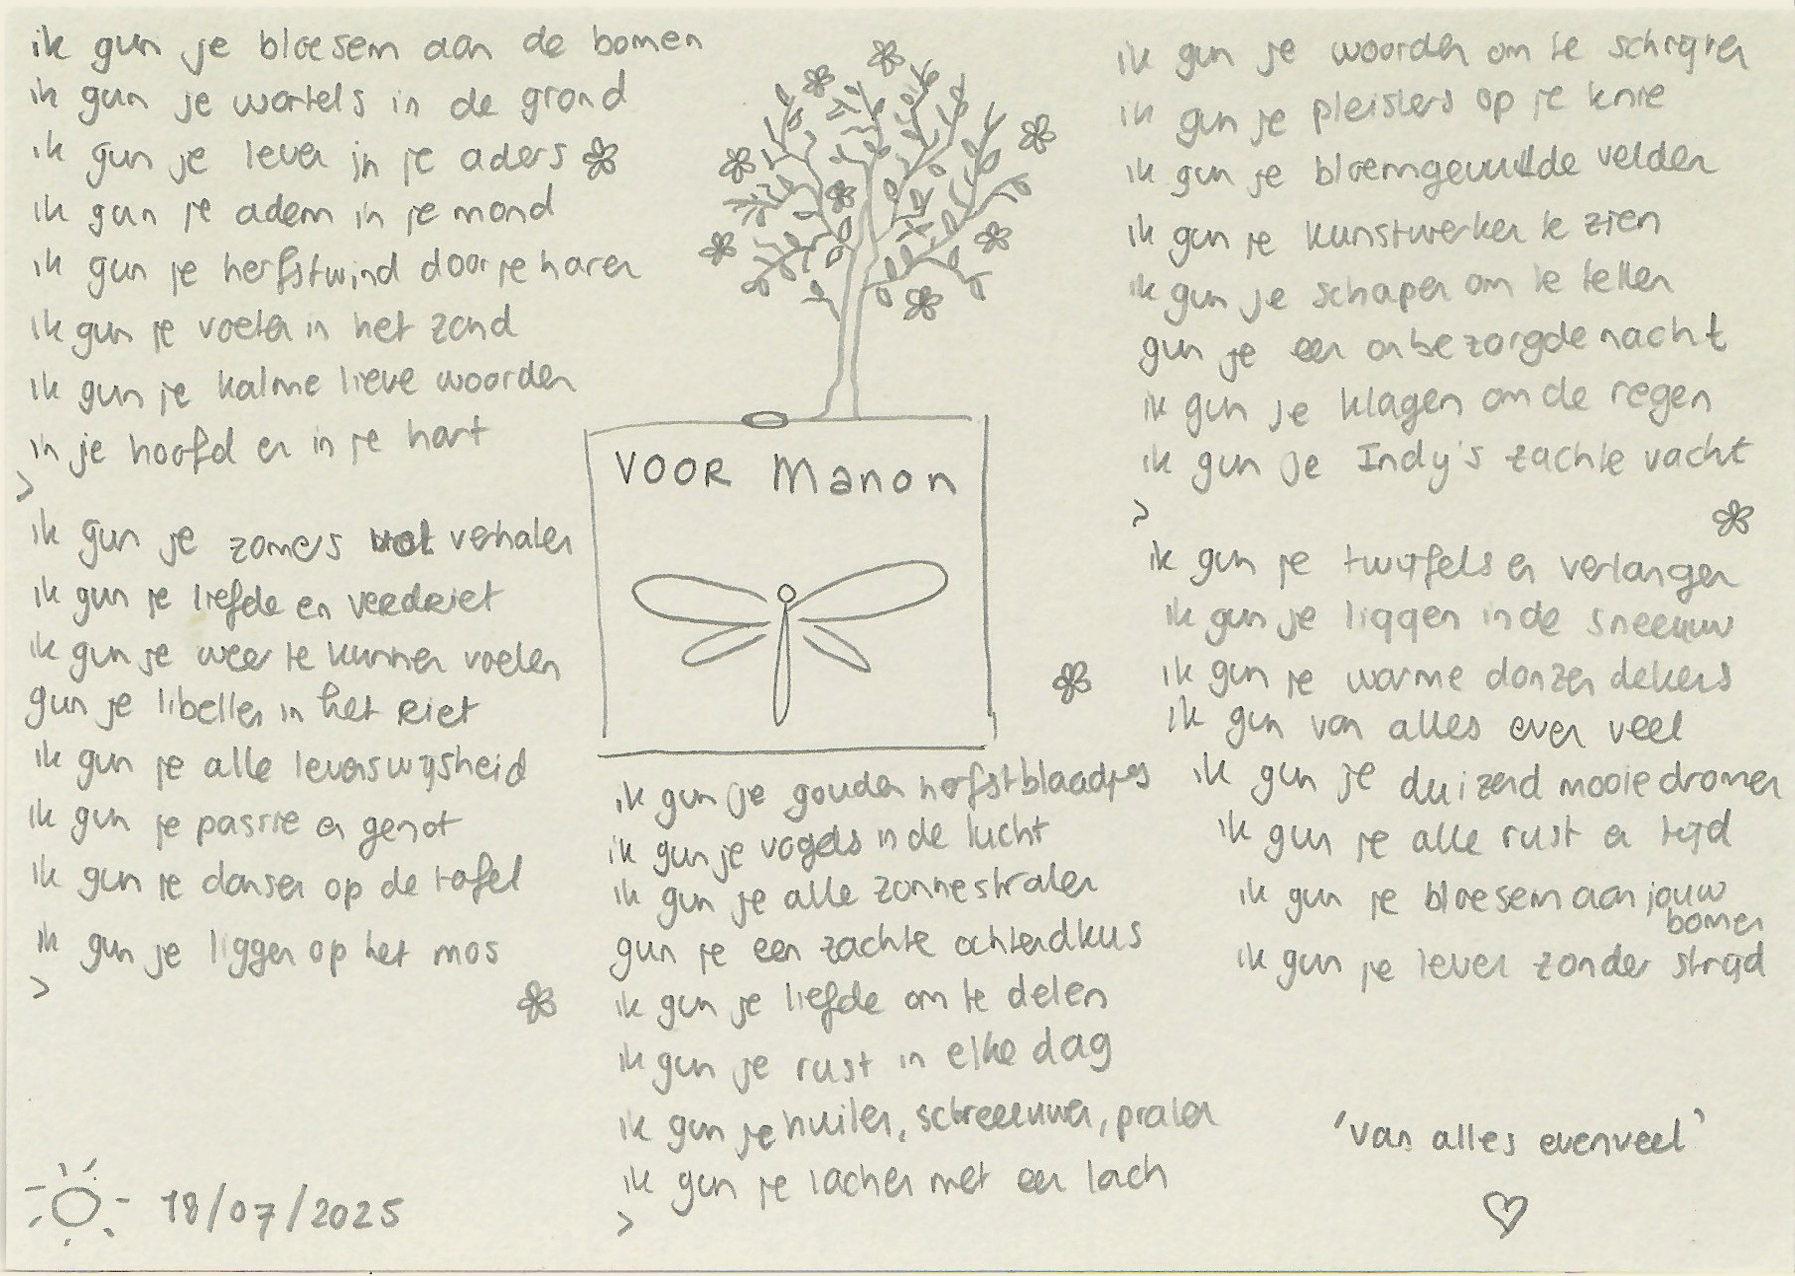 ik gun je bloesem aan de bomen
ik gun je wortels in de grond
ik gun je leven in je aders
ik gun je adem in je mond
ik gun je herfstwind door je haren
ik gun je voeten in het zand
ik gun je kalme lieve woorden
in je hoofd en in je hart
>
ik gun je zomers vol verhalen
ik gun je liefde en verdriet
ik gun je weer te kunnen voelen
gun je libellen in het riet
ik gun je alle levenswijsheid
ik gun je passie en genot
ik gun je dansen op de tafel
ik gun je liggen op het mos
>
18/07/2025
VOOR Manon
ik gun je gouden herfstblaadjes
ik gun je vogels in de lucht
ik gun je alle zonnestralen
gun je een zachte ochtendkus
ik gun je liefde om te delen
ik gun je rust in elke dag
ik gun je huilen, schreeuwen, pralen
ik gun je lachen met een lach
>
ik gun je woorden om te schrijven
ik gun je pleisters op je knie
ik gun je bloemgevulde velden
ik gun je kunstwerken te zien
ik gun je schapen om te tellen
gun je een onbezorgde nacht
ik gun je klagen om de regen
ik gun je Indy's zachte vacht
>
ik gun je twijfels en verlangen
ik gun je liggen in de sneeuw
ik gun je warme donzen dekens
ik gun van alles even veel
ik gun je duizend mooie dromen
ik gun je alle rust en tijd
ik gun je bloesem aan jouw
bomen
ik gun je leven zonder strijd
'van alles evenveel'